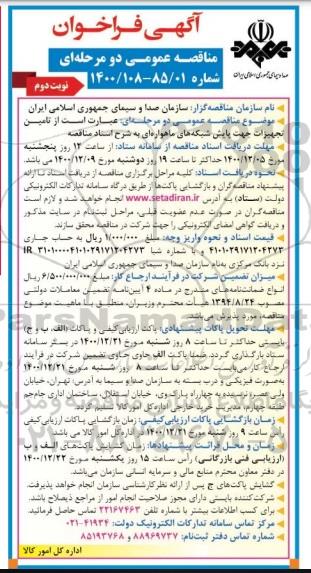 آگهی فراخوان
مناقصه عمومی دو مرحله‌ای
شماره ۱۴۰۰/۱۰۸-۸۵/۰۱
صدا و سیمای جمهوری اسلامی ایران
نوبت دوم
نام سازمان مناقصه‌گزار: سازمان صدا و سیمای جمهوری اسلامی ایران
موضوع مناقصه عمومی دو مرحله‌ای: عبارت است از تامین
تجهیزات جهت پایش شبکه‌های ماهواره‌ای به شرح اسناد مناقصه
مهلت دریافت اسناد مناقصه از سامانه ستاد: از ساعت ۱۲ روز پنجشنبه
مورخ ۱۴۰۰/۱۲/۰۵ حداکثر تا ساعت ۱۹ روز دوشنبه مورخ ۱۴۰۰/۱۲/۰۹ می باشد.
نحوه دریافت اسناد: کلیه مراحل برگزاری مناقصه از دریافت اسناد تا ارائه
پیشنهاد مناقصه‌گران و بازگشایی پاکت‌ها از طریق درگاه سامانه تدارکات الکترونیکی
دولت (ستاد) به آدرس www.setadiran.ir انجام خواهد شد و لازم است
مناقصه‌گران در صورت عدم عضویت قبلی، مراحل ثبت‌نام در سایت مذکور
و دریافت گواهی امضای الکترونیکی را جهت شرکت در مناقصه محقق سازند.
قیمت اسناد و نحوه واریز وجه: مبلغ ۱/۰۰۰/۰۰۰ ریال به حساب جاری
۴۱۰۱۰۲۹۱۷۱۲۰۴۲۷۳ و با شماره شبا
نزد بانک مرکزی به‌نام سازمان صدا و سیمای جمهوری اسلامی ایران.
میزان تضمین شرکت در فرآیند ارجاع کار: مبلغ ۶/۵۰۰/۰۰۰/۰۰۰ ریال
انواع ضمانت‌نامه‌های مندرج در ماده ۴ آیین‌نامه تضمین معاملات دولتی
مصوب ۱۳۹۴/۸/۲۴ هیأت محترم وزیران، منطبق با ماهیت موضوع
مناقصه، مورد پذیرش می‌باشد.
مهلت تحویل پاکات پیشنهادی: پاکت ارزیابی کیفی و پاکات (الف، ب و ج)
بایستی حداکثر تا ساعت ۸ روز شنبه مورخ ۱۴۰۰/۱۲/۲۱ در بستر سامانه
ستاد بارگذاری گردد. ضمنا پاکت الف حاوی تضمین شرکت در فرآیند
ارجاع کار می‌بایست حداکثر تا ساعت ۸ روز شنبه مورخ ۱۴۰۰/۱۲/۲۱
به‌صورت فیزیکی و درب بسته به سازمان صدا و سیما به آدرس: تهران، خیابان
ولی‌عصر، نرسیده به چهارراه پارک‌وی، خیابان استقلال، ساختمان اداری جام‌جم
طبقه چهارم، مدیریت خرید خارجی اداره کل امور کالا تسلیم گردد.
زمان بازگشایی پاکات ارزیابی کیفی: زمان بازگشایی پاکات ارزیابی کیفی
راس ساعت ۹ روز شنبه مورخ ۱۴۰۰/۱۲/۲۱ در اداره کل امور کالا می باشد.
زمان و محل قرائت پیشنهادها: زمان گشایش پاکت‌های الف و ب
(ارزیابی فنی بازرگانی) راس ساعت ۱۵ روز یکشنبه مورخ ۱۴۰۰/۱۲/۲۲
در دفتر معاون محترم منابع مالی و سرمایه انسانی سازمان می‌باشد.
گشایش پاکت‌های ج پس از ارائه نظر کارشناسی سازمان انجام خواهد پذیرفت.
شرکت‌کننده بایستی دارای مجوز صلاحیت انجام امور از مراجع ذیصلاح باشد.
برای کسب اطلاعات بیشتر با شماره تلفن ۲۲۱۶۷۴۶۳ تماس حاصل فرمائید.
مرکز تماس سامانه تدارکات الکترونیک دولت: ۴۱۹۳۴-۰۲۱
شماره تماس دفتر ثبت‌نام: ۸۸۹۶۹۷۳۷ و ۸۵۱۹۳۷۶۸
اداره کل امور کالا